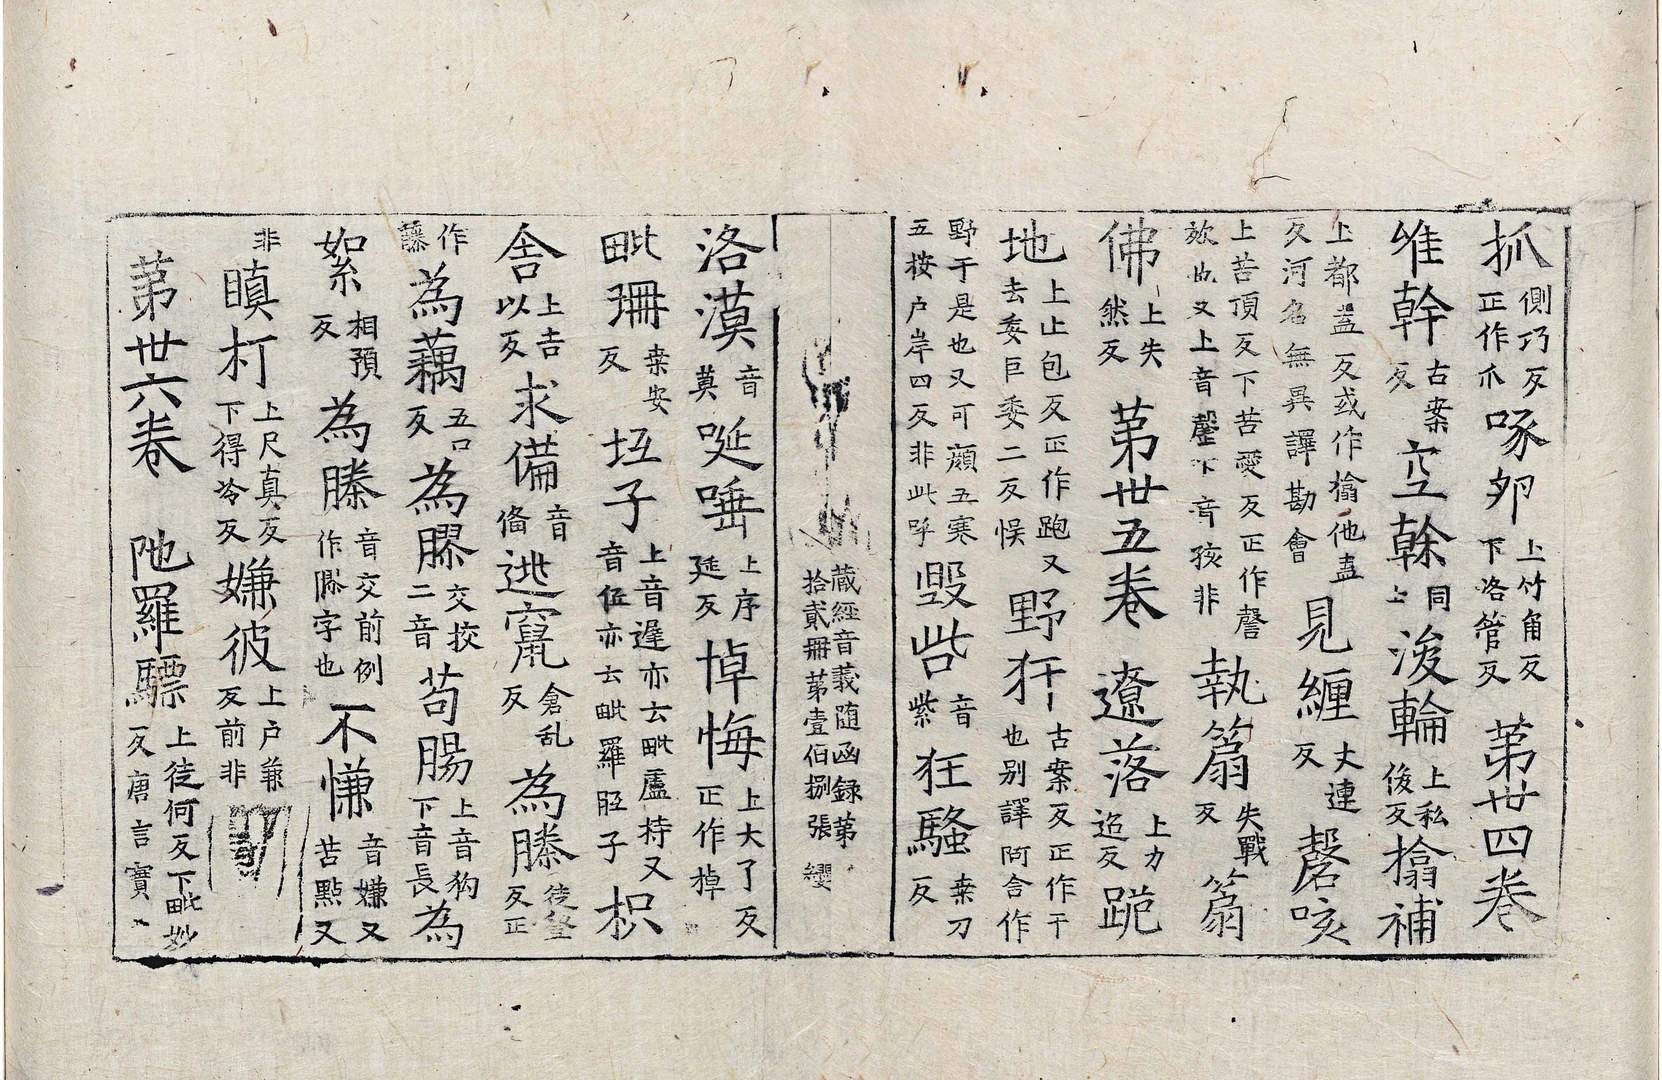 抓側巧反正作爪啄夘上竹角反下洛管反第丗四卷
維幹古案反空榦同上浚輪上私俊反搚補
上都盍反或作搚他盍反河名無異譯勘會見纏丈連反磬咳
上苦頂反下苦愛反正作謦欬也又上音罄下音孩非執篇失戰反篇
佛上失然反第丗五卷遼落上力迢反跪
地上止包反正作跑又去委巨委二反悮野犴古案反正作干也别譯阿含作
野干是也又可顔五寒五桉户岸四反非此呼毀呰音紫狂騷桒刀反
藏經音義随函録第拾貳冊第壹伯捌張 纓
洛漠音莫唌唾上序延反悼悔上大了反正作掉
毗珊桒安反坘子上音遟亦云毗盧持又音伍亦云毗羅胵子枳
舍上吉以反求備音俻逃竄倉乱反為縢徒登反正
作䕨為藕五口反為膠交挍二音茍腸上音狗下音長為
絮相預反為縢音交前例作膠字也不慊音嫌又苦點又
非瞋朾上尺真反下得冷反嫌彼上户兼反前非
第丗六卷阤羅驃上徒何反下毗妙反唐言實